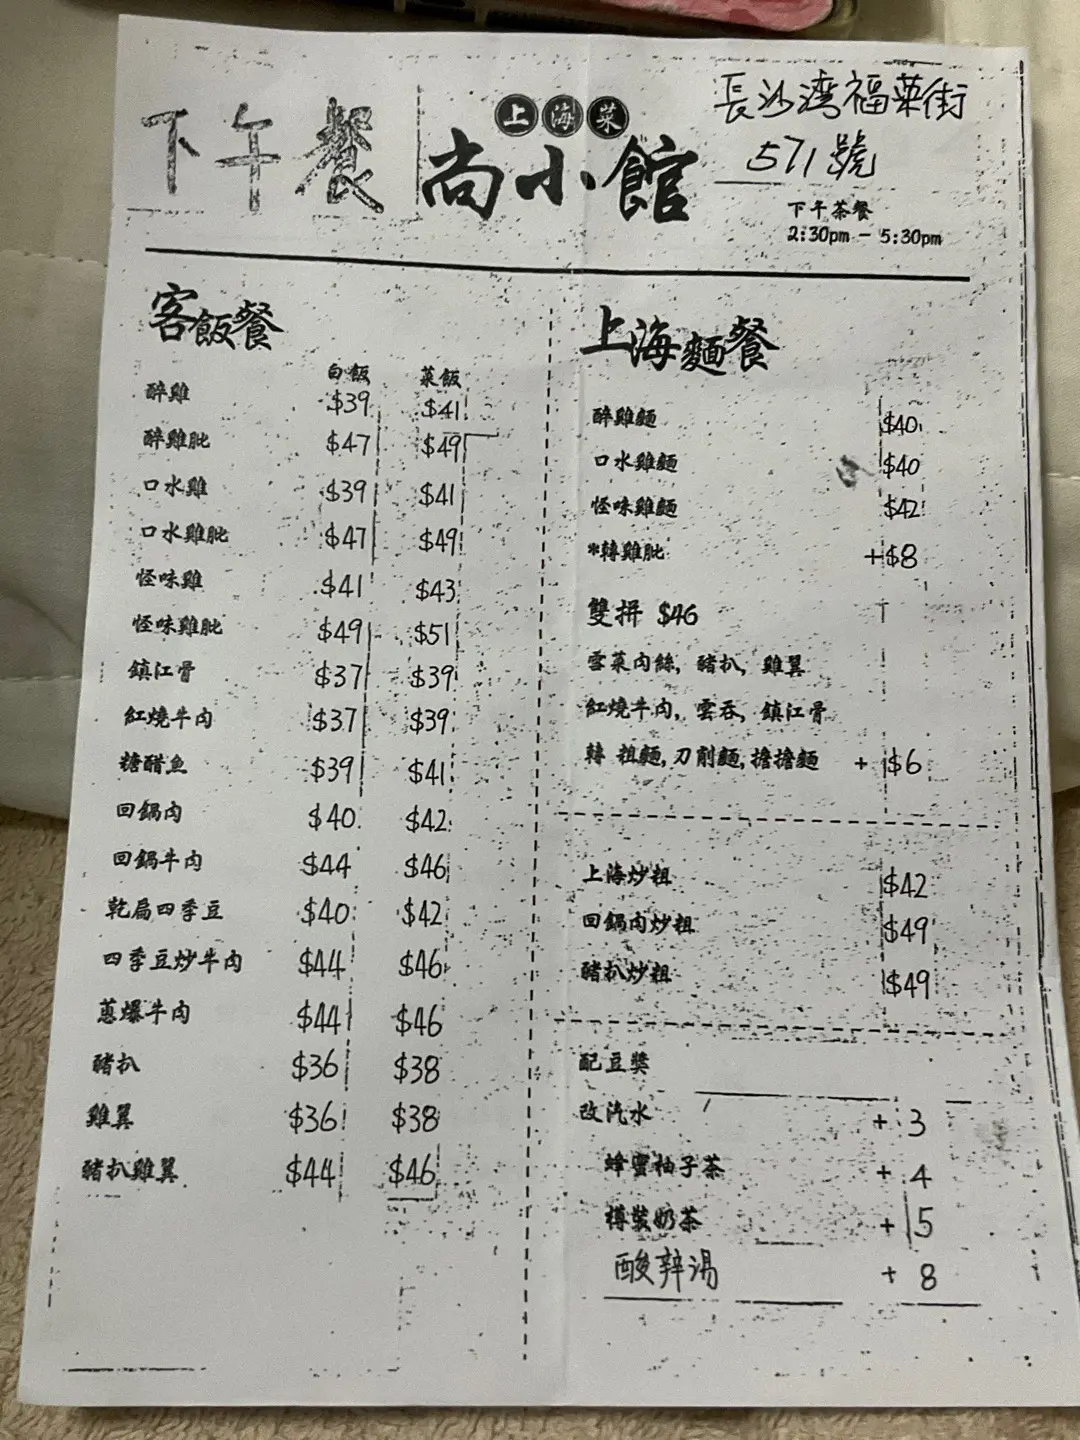 下午餐
上海菜
尚小館
長沙湾福荣街
571號
下午茶餐
2:30pm - 5:30pm
客飯餐
白飯 菜飯
醉雞 $39 $41
醉雞肶 $47 $49
口水雞 $39 $41
口水雞肶 $47 $49
怪味雞 $41 $43
怪味雞肶 $49 $51
鎮江骨 $37 $39
紅燒牛肉 $37 $39
糖醋魚 $39 $41
回鍋肉 $40 $42
回鍋牛肉 $44 $46
乾扁四季豆 $40 $42
四季豆炒牛肉 $44 $46
蔥爆牛肉 $44 $46
豬扒 $36 $38
雞翼 $36 $38
豬扒雞翼 $44 $46
上海麵餐
醉雞麵 $40
口水雞麵 $40
怪味雞麵 $42
*轉雞肶 +$8
雙拼 $46
雪菜肉絲, 豬扒, 雞翼
紅燒牛肉, 雲吞, 鎮江骨
轉 粗麵, 刀削麵, 擔擔麵 + $6
上海炒粗 $42
回鍋肉炒粗 $49
豬扒炒粗 $49
配豆奬
改汽水 + 3
蜂蜜柚子茶 + 4
樽裝奶茶 + 5
酸辣湯 + 8